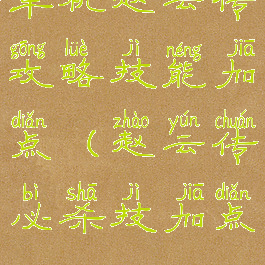 单机赵云传
gōng lüè jì néng jiā
攻略技能加
diǎn zhào yún chuán
点（赵云传
bì shā jì jiā diǎn
必杀技加点